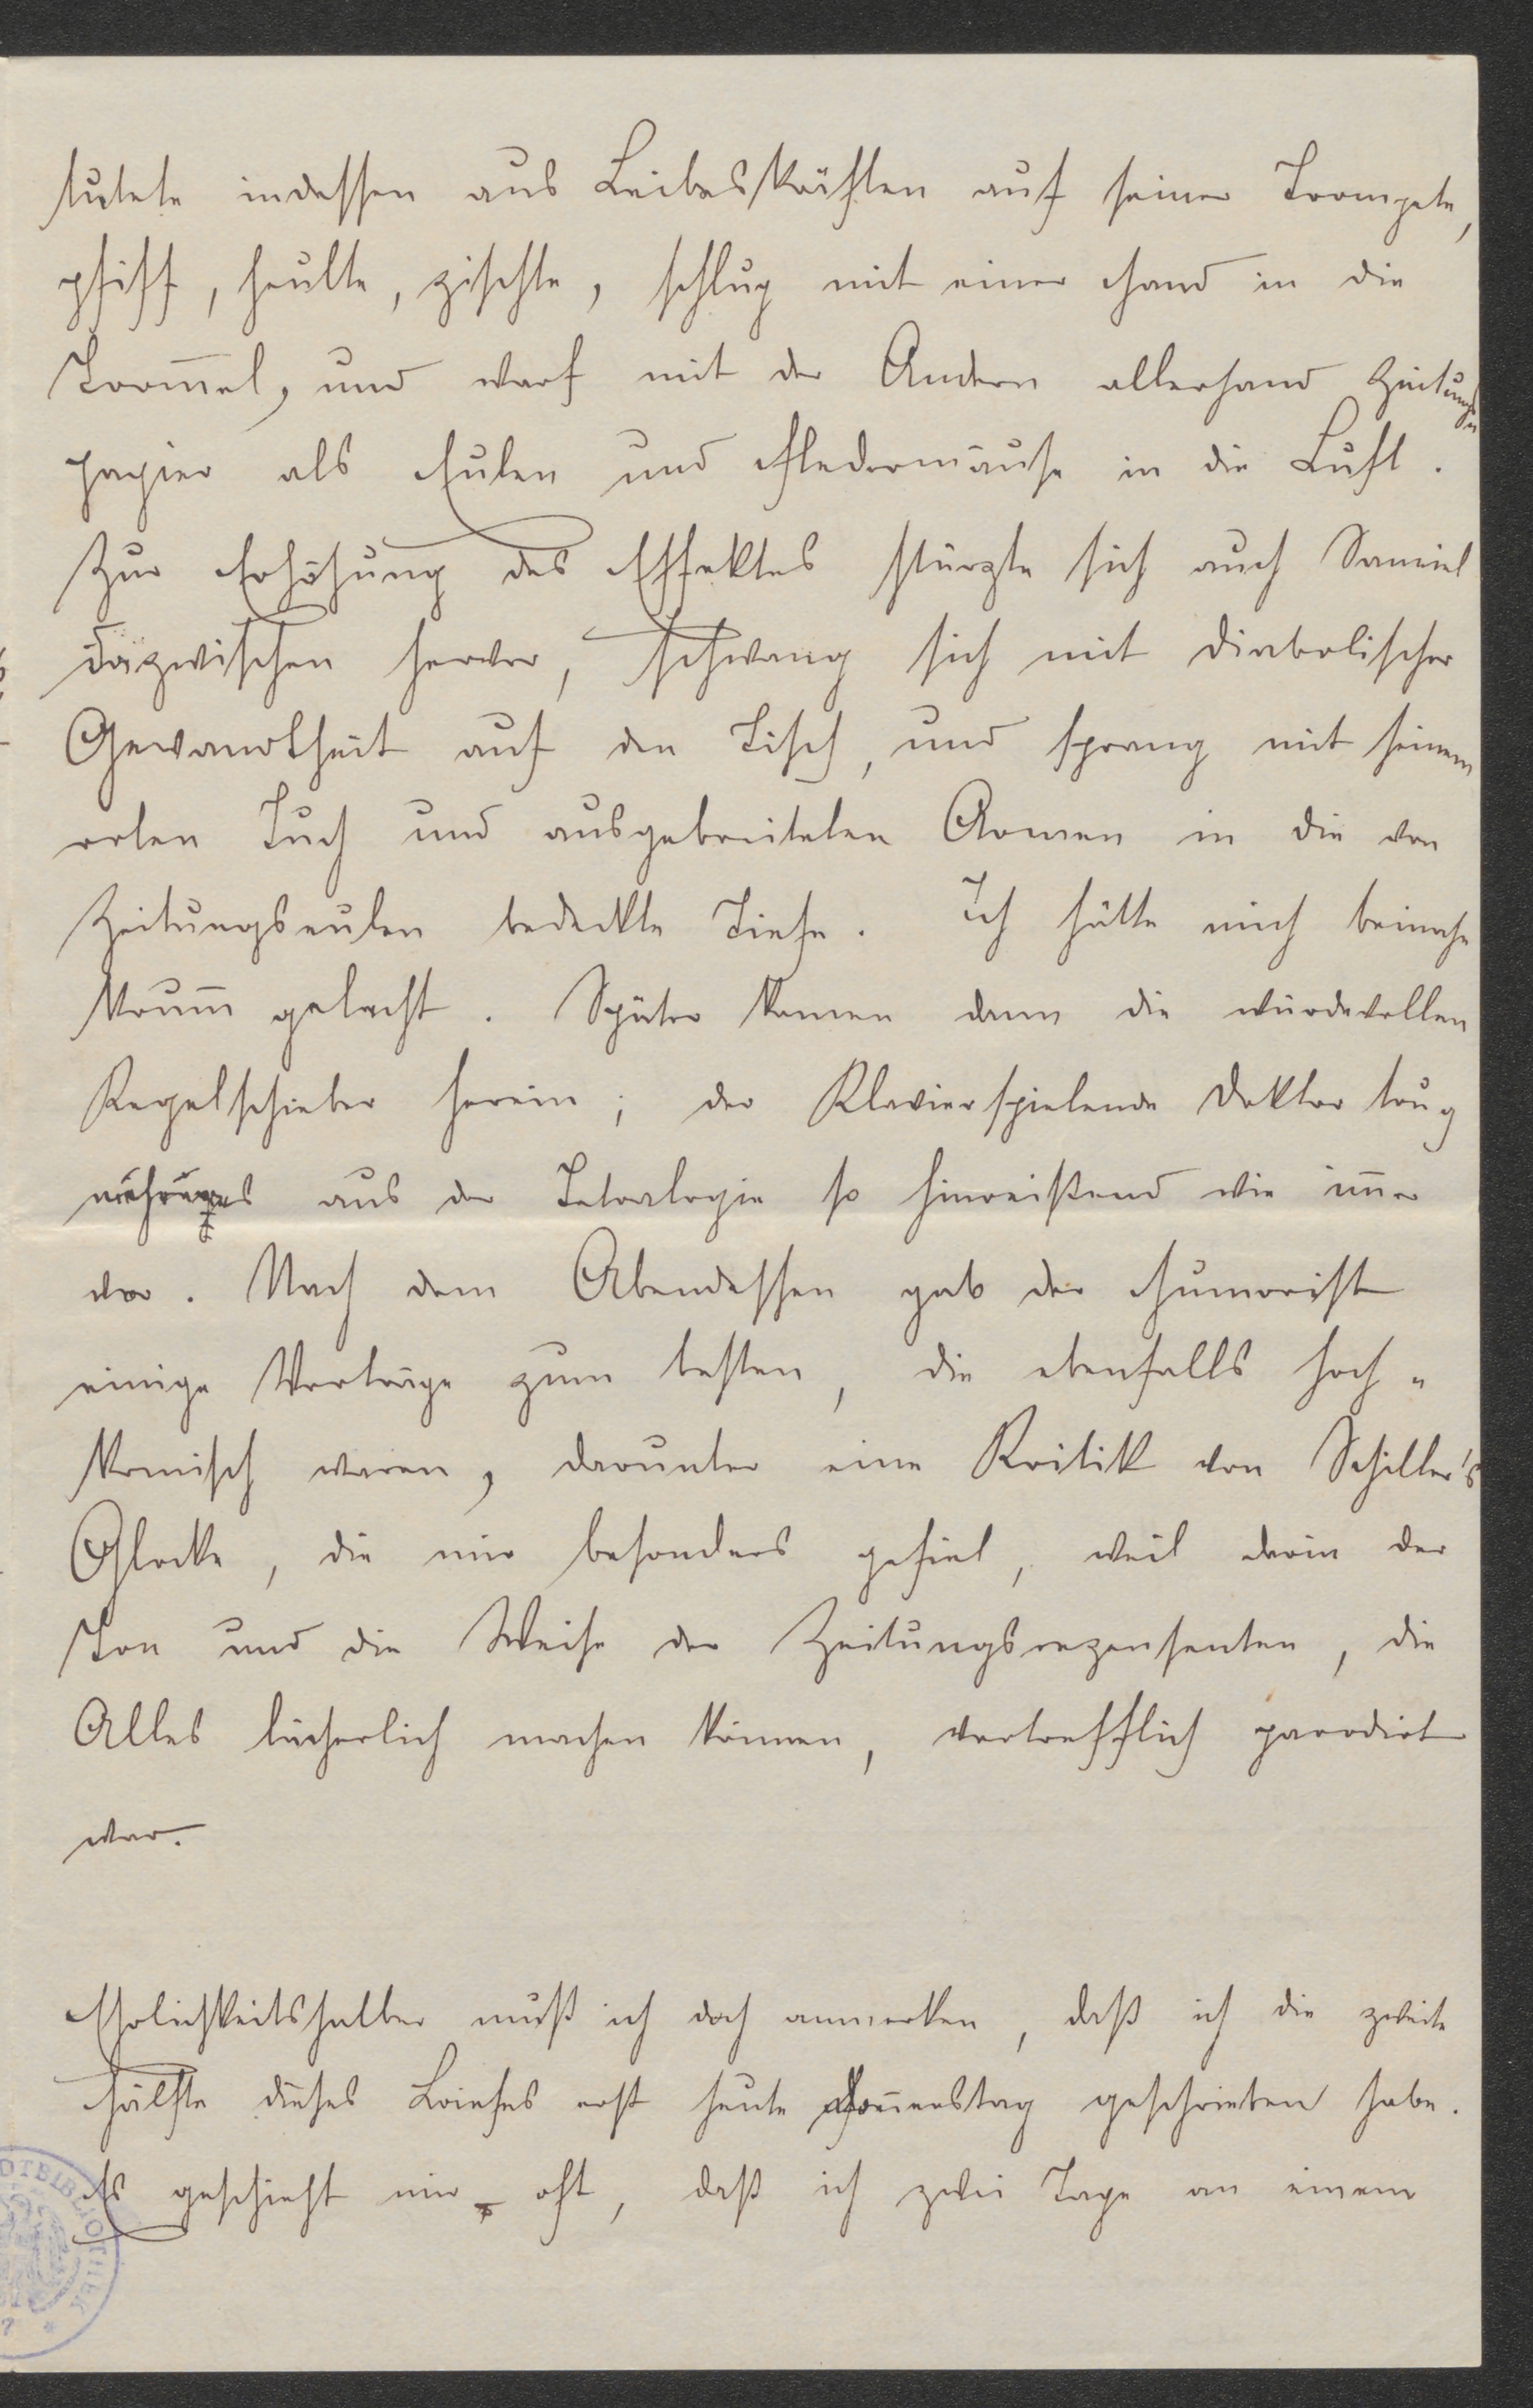 tutete indessen aus Leibeskräften auf seiner Trompete,
pfiff, heulte, zischte, schlug mit einer Hand in die
Trom̅el, und warf mit der Andern allerhand Zeitungs-
papier als Eulen und Fledermäuse in die Luft.
Zur Erhöhung des Effektes stürzte sich auch Samiel
dazwischen hervor, schwang sich mit diabolischer
Gewandtheit auf den Tisch, und sprang mit seinem
roten Tuch und ausgebreiteten Armen in die von
Zeitungseulen bedeckte Tiefe. Ich hätte mich beinahe
krum̅ gelacht. Später kamen dann die würdevollen
Kegelschieber herein; der Klavierspielende Doktor trug
aus der Tetralogie so hinreißend wie im̅er
vor. Nach dem Abendessen gab der Humorist
einige Vorträge zum besten, die ebenfalls hoch-
komisch waren, darunter eine Kritik von Schiller's
Glocke, die mir besonders gefiel, weil darin der
Ton und die Weise der Zeitungsrezensenten, die
Alles lächerlich machen können, vortrefflich parodirt
war.
Ehrlichkeitshalber muß ich doch anmerken, daß ich die zweite
Hälfte dieses Briefes erst heute Don̅erstag geschrieben habe.
Es geschieht mir oft, daß ich zwei Tage an einem
OTBIBLIOTHEK